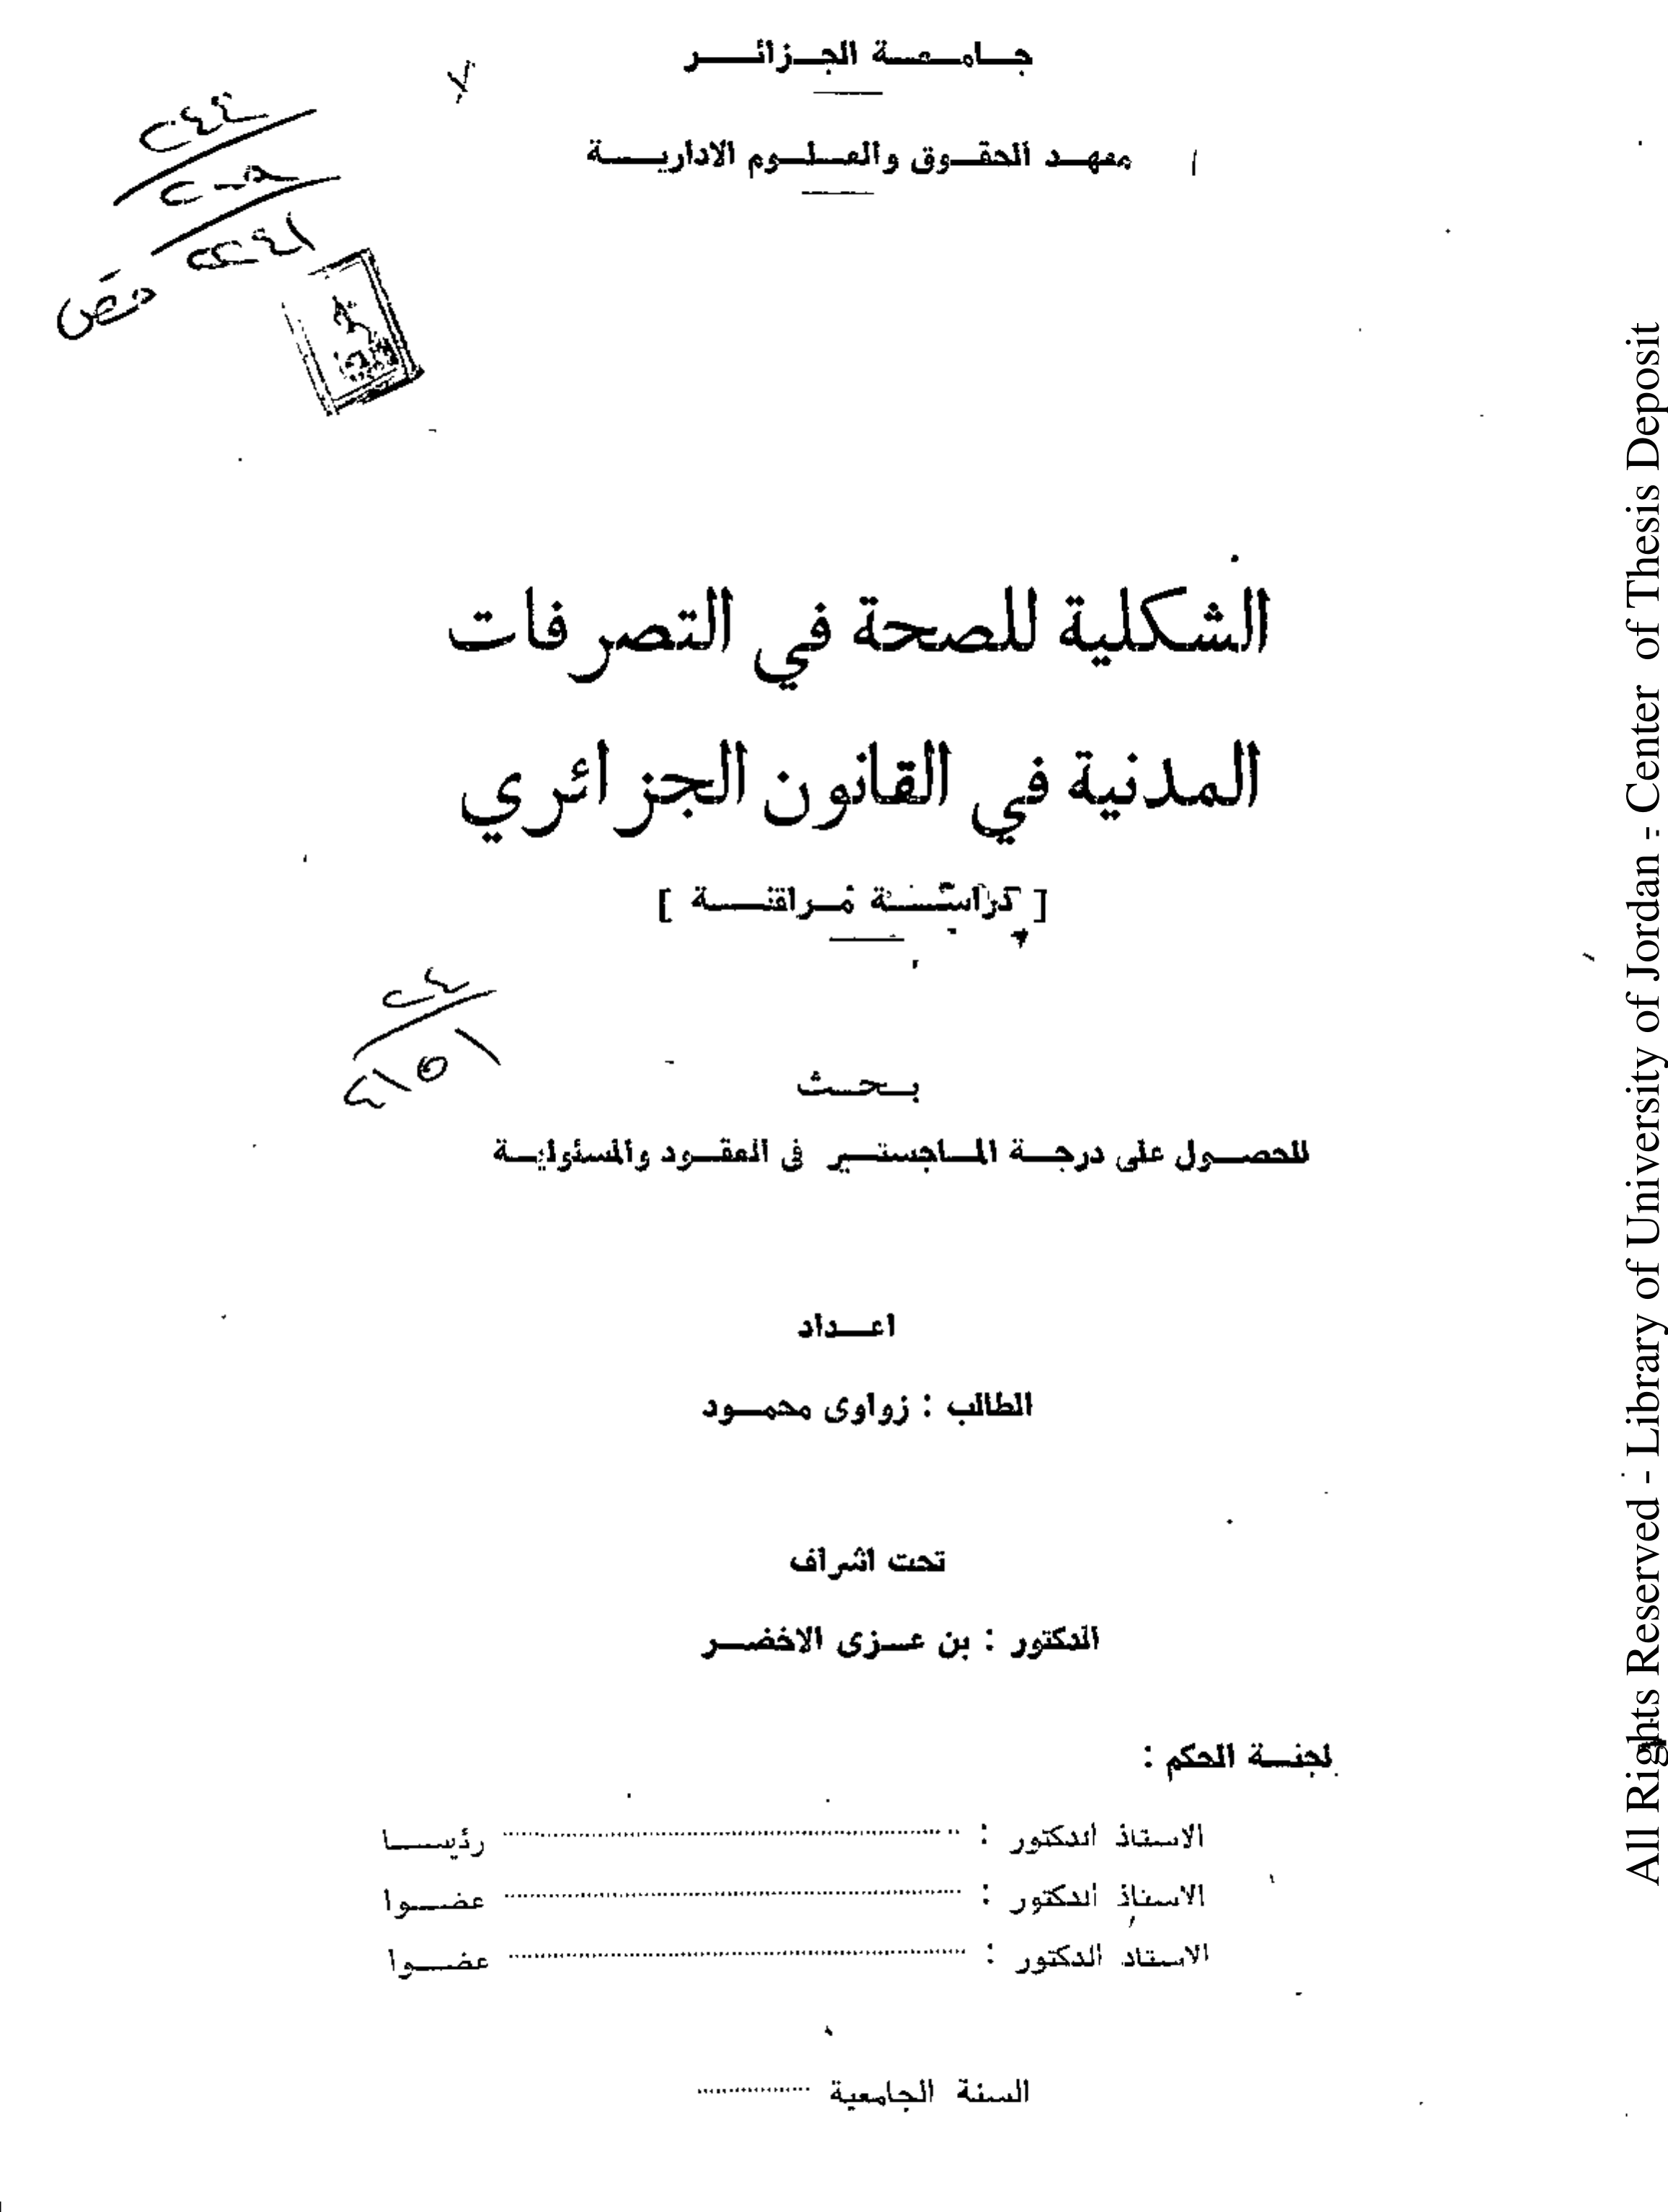 جامعة الجزائر
معهد الحقوق والعلوم الادارية
الشكلية للصحة في التصرفات
المدنية في القانون الجزائري
[ دراسة مراقنة ]
بحث
للحصول على درجة الماجستير فى العقود والمسئولية
اعداد
الطالب : زواوى محمود
تحت اشراف
الدكتور : بن عزى الاخضر
لجنة الحكم :
الاستاذ الدكتور : .......................... رئيسا
الاستاذ الدكتور : .......................... عضوا
الاستاذ الدكتور : .......................... عضوا
السنة الجامعية ..........
All Rights Reserved - Library of University of Jordan - Center of Thesis Deposit